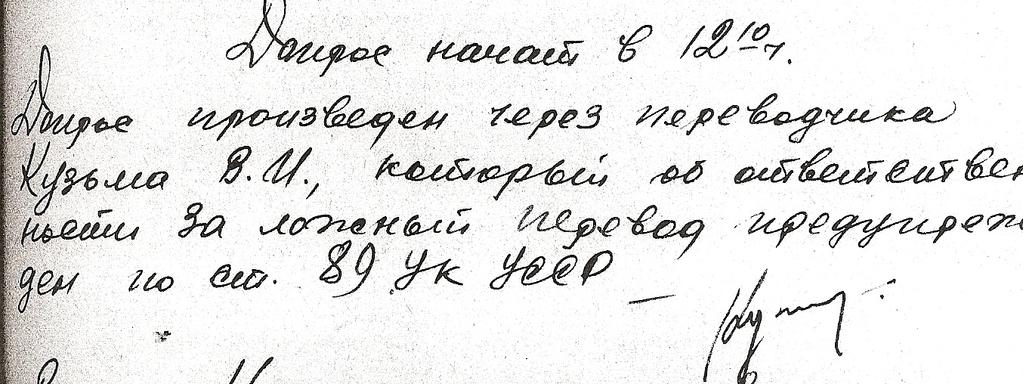 Допрос начат в 12 10 ч.
Допрос произведен через переводчика
Кузьма В.И., который об ответствен
ности за ложный перевод предупреж
ден по ст. 89 УК УССР —